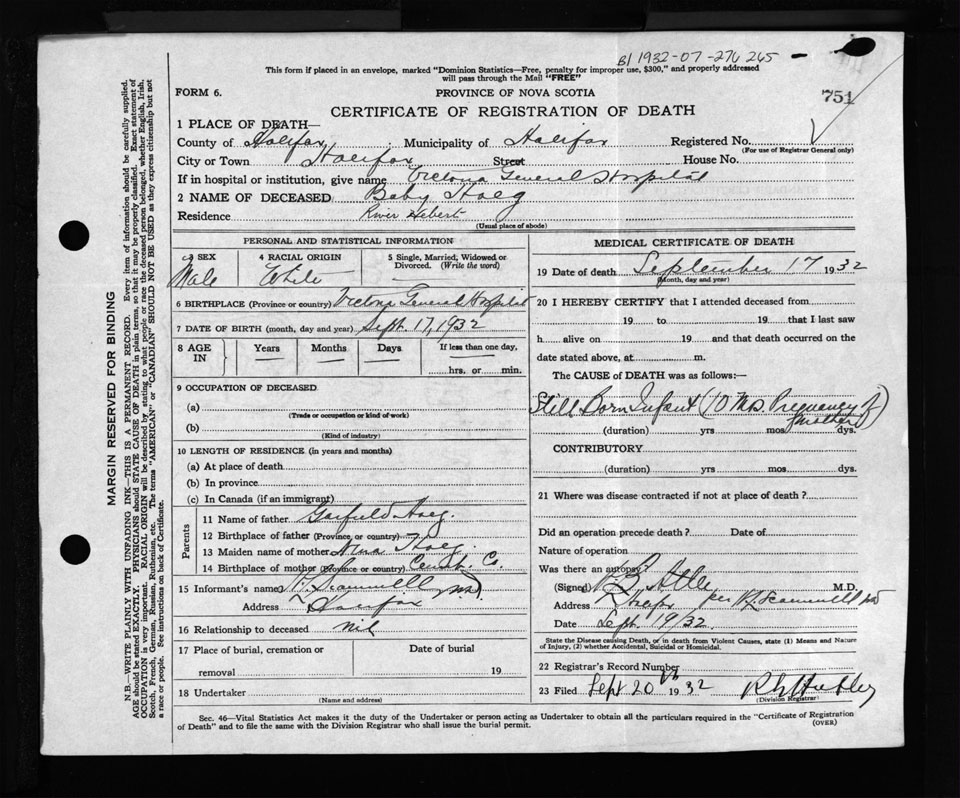 B1 1932-07-276 265
This form if placed in an envelope, marked "Dominion Statistics—Free, penalty for improper use, $300," and properly addressed
will pass through the Mail "FREE"
FORM 6.
PROVINCE OF NOVA SCOTIA
751
CERTIFICATE OF REGISTRATION OF DEATH
1 PLACE OF DEATH—
County of Halifax Municipality of Halifax Registered No.
(For use of Registrar General only)
City or Town Halifax Street House No.
If in hospital or institution, give name Victoria General Hospital
2 NAME OF DECEASED Baby Hoeg
Residence River Hebert
(Usual place of abode)
PERSONAL AND STATISTICAL INFORMATION
3 SEX Male
4 RACIAL ORIGIN White
5 Single, Married, Widowed or Divorced. (Write the word)
6 BIRTHPLACE (Province or country) Victoria General Hospital
7 DATE OF BIRTH (month, day and year) Sept. 17, 1932
8 AGE IN Years Months Days If less than one day, hrs. or min.
9 OCCUPATION OF DECEASED
(a)
(Trade or occupation or kind of work)
(b)
(Kind of industry)
10 LENGTH OF RESIDENCE (in years and months)
(a) At place of death
(b) In province
(c) In Canada (if an immigrant)
Parents
11 Name of father Garfield Hoeg.
12 Birthplace of father (Province or country)
13 Maiden name of mother Hoeg.
14 Birthplace of mother (Province or country) Cumb. Co.
15 Informant's name Scammell MD
Address Halifax
16 Relationship to deceased nil
17 Place of burial, cremation or removal Date of burial 19
18 Undertaker
(Name and address)
MEDICAL CERTIFICATE OF DEATH
19 Date of death September 17 1932
(Month, day and year)
20 I HEREBY CERTIFY that I attended deceased from
19 to 19 that I last saw
h alive on 19 and that death occurred on the
date stated above, at m.
The CAUSE of DEATH was as follows:—
Still Born Infant (10 Mos. Pregnancy of mother)
(duration) yrs mos dys.
CONTRIBUTORY
(duration) yrs mos dys.
21 Where was disease contracted if not at place of death?
Did an operation precede death? Date of
Nature of operation
Was there an autopsy?
(Signed) M.D.
Address Halifax per Scammell MD
Date Sept. 19/32.
State the Disease causing Death, or, in death from Violent Causes, state (1) Means and Nature
of Injury, (2) whether Accidental, Suicidal or Homicidal.
22 Registrar's Record Number
23 Filed Sept 20th 1932
(Division Registrar)
Sec. 46—Vital Statistics Act makes it the duty of the Undertaker or person acting as Undertaker to obtain all the particulars required in the "Certificate of Registration
of Death" and to file the same with the Division Registrar who shall issue the burial permit.
(OVER)
MARGIN RESERVED FOR BINDING
N.B.—WRITE PLAINLY WITH UNFADING INK—THIS IS A PERMANENT RECORD. Every item of information should be carefully supplied.
AGE should be stated EXACTLY. PHYSICIANS should STATE CAUSE OF DEATH in plain terms, so that it may be properly classified. Exact statement of
OCCUPATION is very important. RACIAL ORIGIN will be described by stating to what people or race the deceased person belonged, whether English, Irish,
Scotch, French, German, Russian, Ruthenian, etc. The terms "AMERICAN" or "CANADIAN" SHOULD NOT BE USED as they express citizenship but not
a race or people. See instructions on back of Certificate.